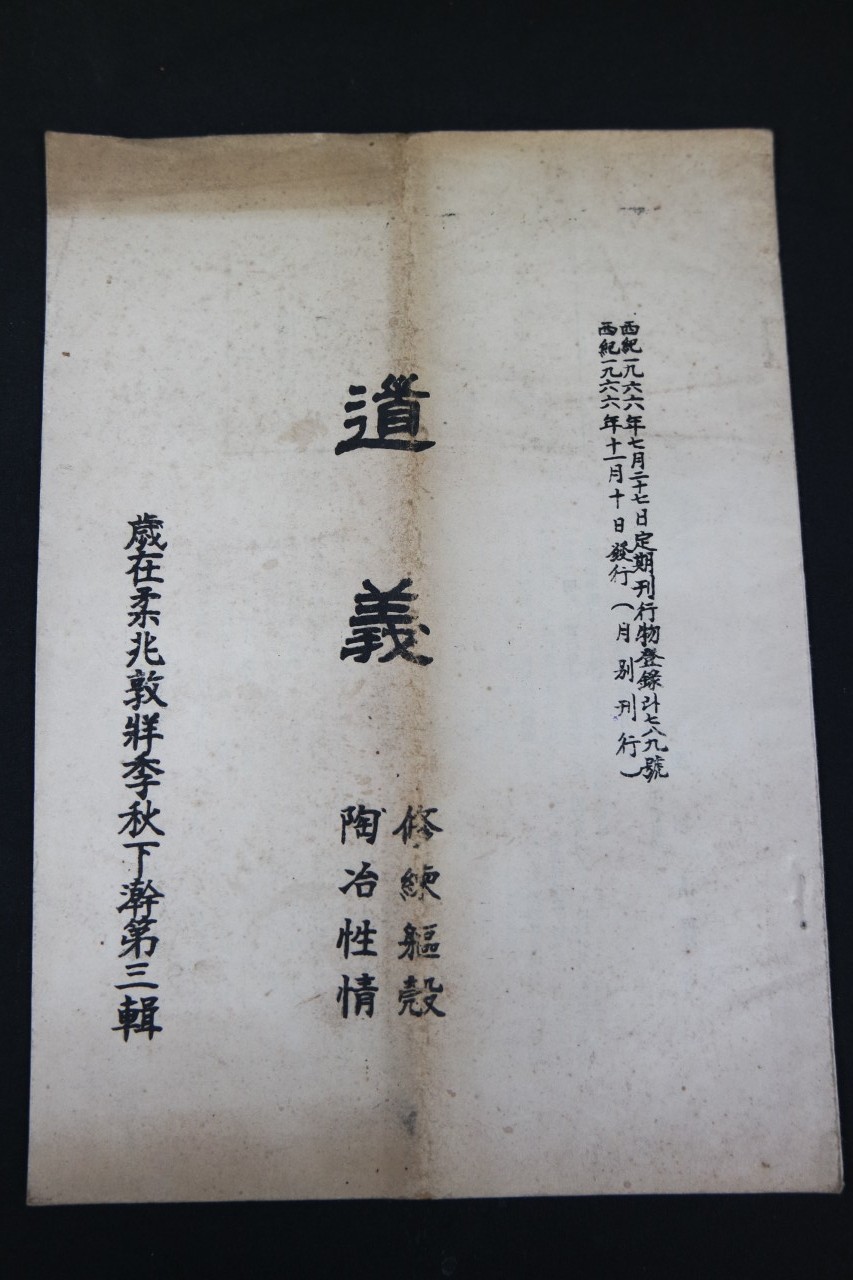 西紀一九六六年七月二十七日定期刊行物登錄라七八九號
西紀一九六六年十一月十日發行(月別刊行)
道義
修練軀殼
陶冶性情
歲在柔兆敦牂季秋下澣第三輯